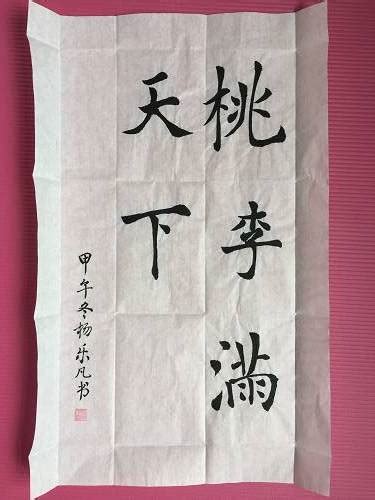 桃李满
天下
甲午冬杨乐凡书